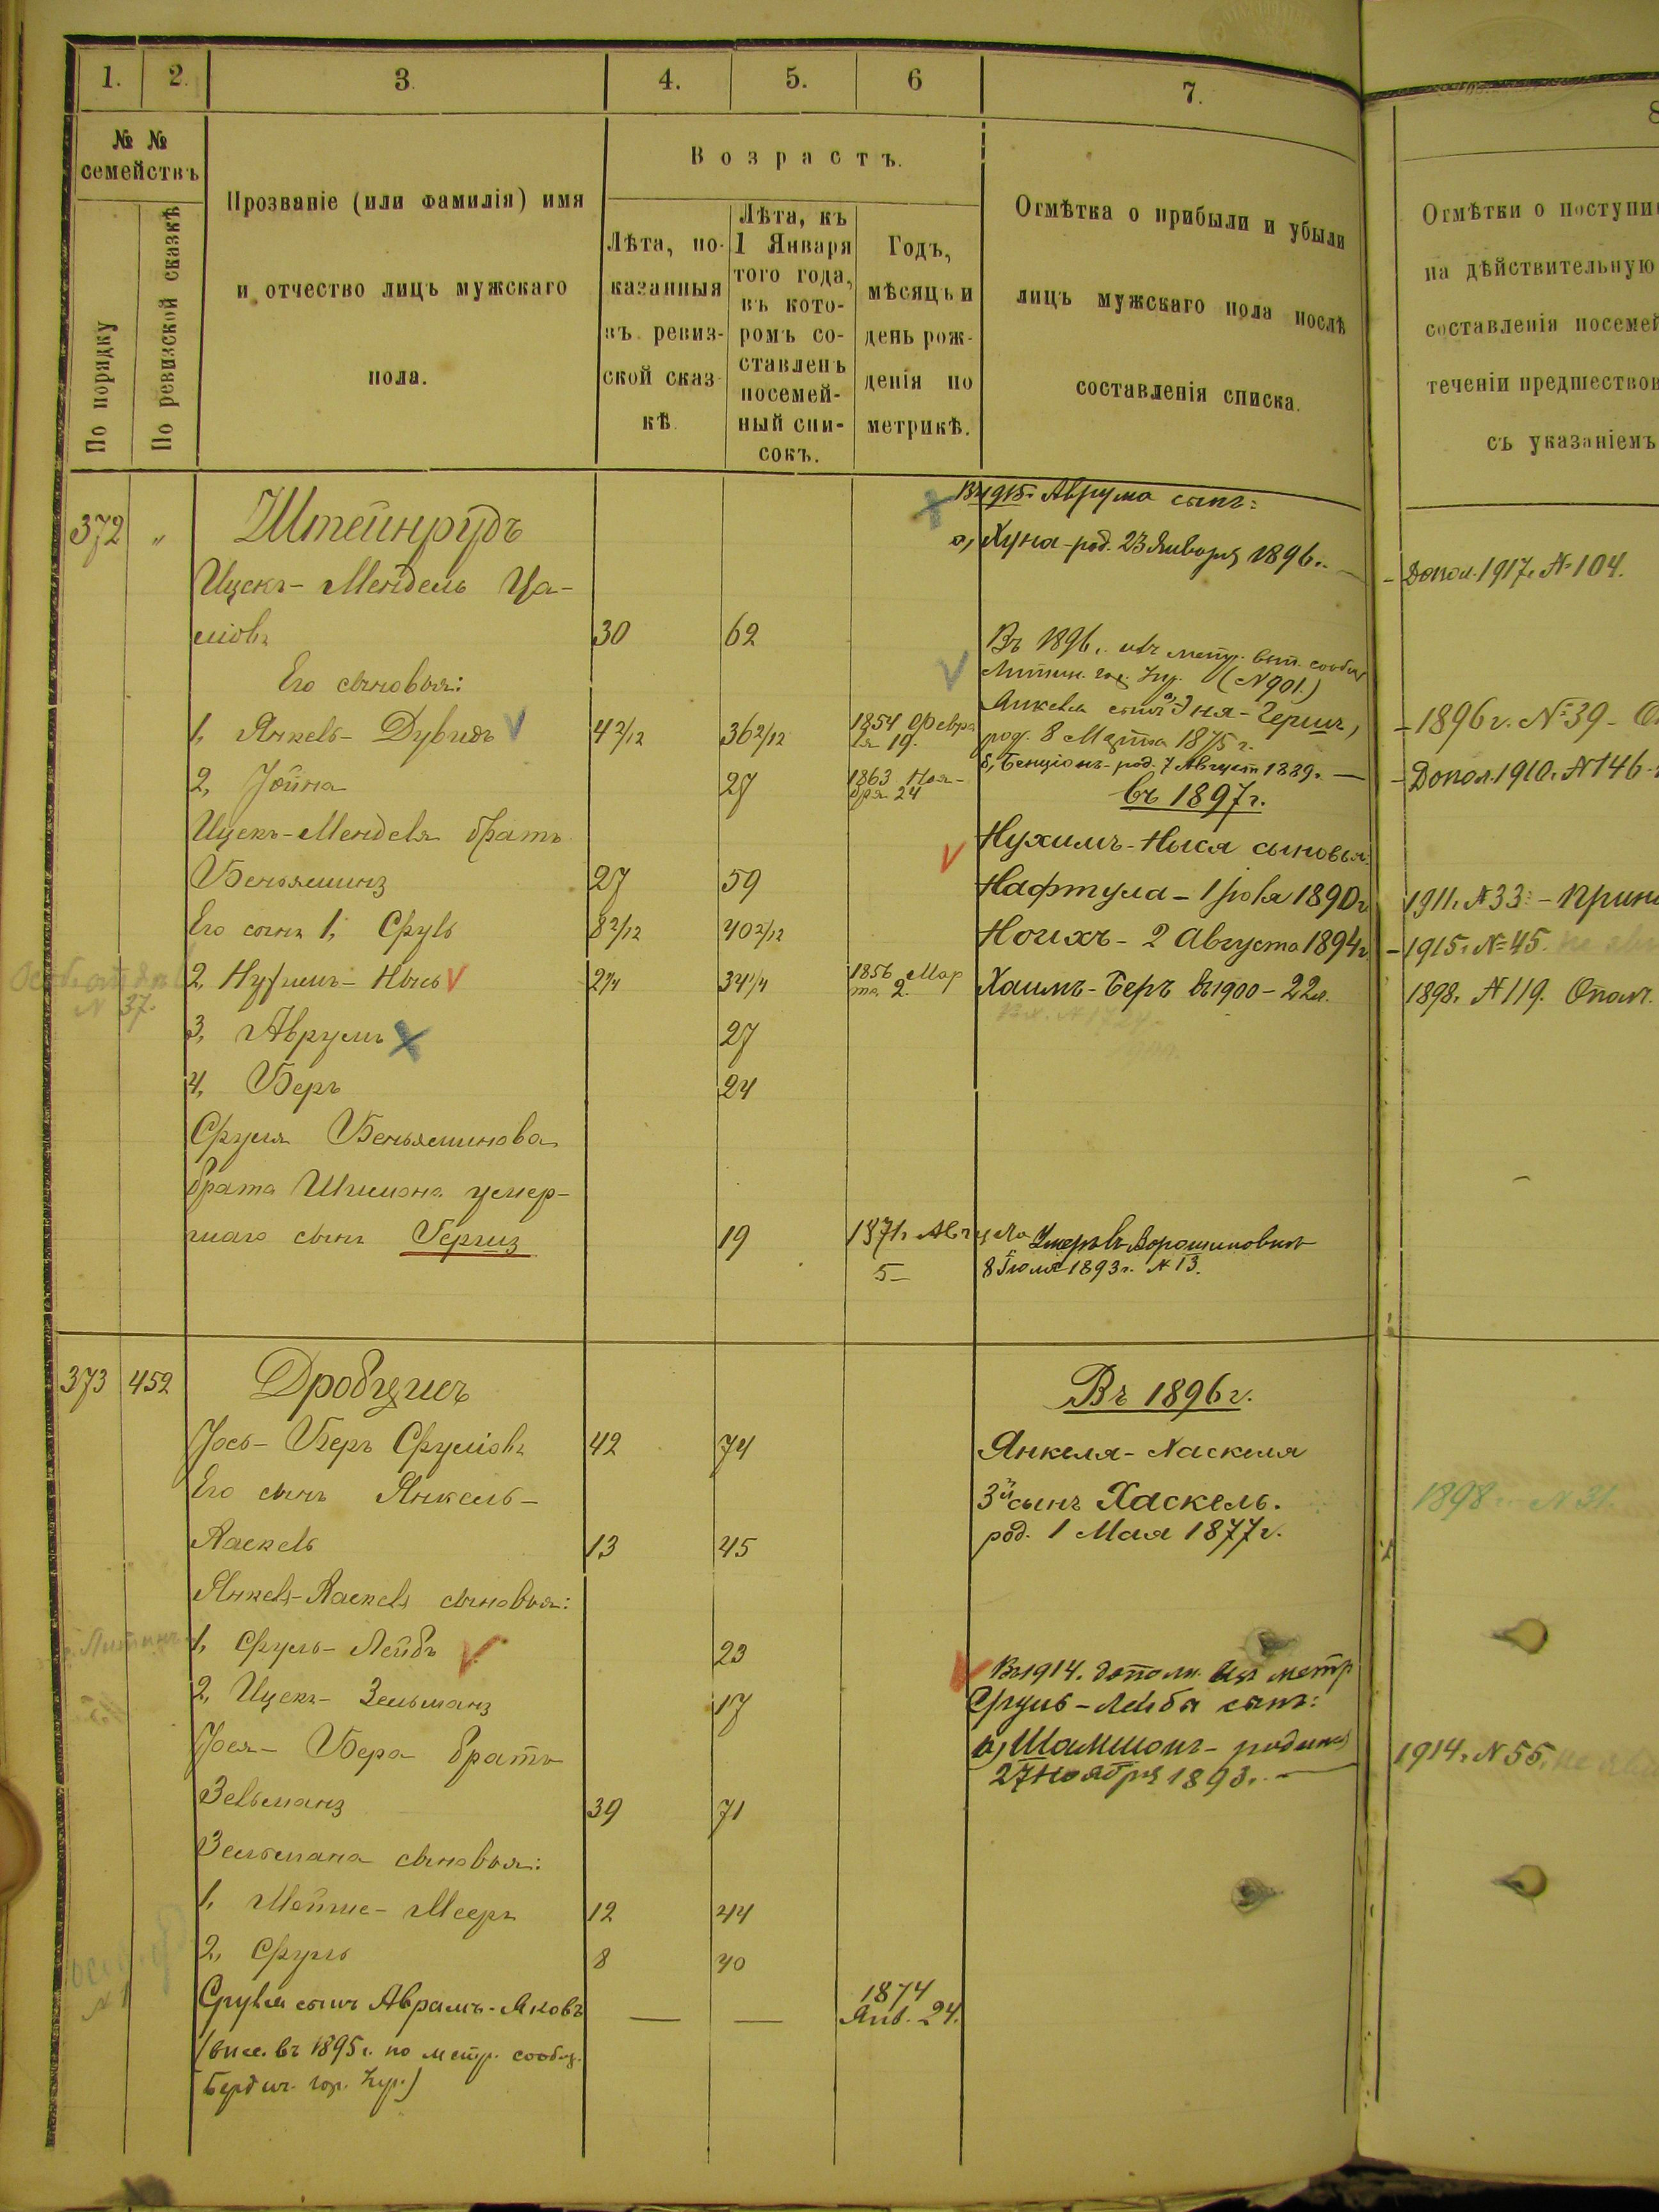 1. 2. 3. 4. 5. 6 7. 8
№ №
семействъ
По порядку
По ревизской сказкѣ
Прозваніе (или фамилія) имя
и отчество лицъ мужскаго
пола.
Возрастъ.
Лѣта, по-
казанныя
въ ревиз-
ской сказ
кѣ
Лѣта, къ
1 Января
того года,
въ кото-
ромъ со-
ставленъ
посемей-
ный спи-
сокъ.
Годъ,
мѣсяцъ и
день рож-
денія по
метрикѣ.
Отмѣтка о прибыли и убыли
лицъ мужскаго пола послѣ
составленія списка.
Отмѣтки о поступи
на дѣйствительную
составленія посемей
теченіи предшествов
съ указаніемъ
372 " Штейнрудъ
Ицекъ-Мендель Ца-
міовъ 30 62
Его сыновья:
1, Янкель-Дувидъ 4 2/12 36 2/12 1854 Февра
ля 19.
2, Іойна 27 1863 Ноя-
бря 24
Ицекъ-Менделя братъ
Беньяминъ 27 59
Его сынъ 1, Сруль 8 2/12 40 2/12
2, Нухимъ-Нысь 2 1/4 34 1/4 1856 Мар
та 2.
№ 37.
3, Аврумъ 27
4, Беръ 24
Сруля Беньяминова
брата Шимона умер-
шаго сынъ Гершъ 19 1871 г. Августа
5
Аврума сынъ:
а, Хуна-род. 23 Января 1896 г.
Въ 1896 г. метр. вып. сообщ
Литин. гор. (№ 901.)
Янкеля сынъ Эня-Гершъ,
род. 8 Марта 1875 г.
б, Бенціонъ-род. 7 Август 1889 г.
въ 1897 г.
Нухимъ-Ныся сыновья:
Нафтула - 1 Іюля 1890 г
Ноихъ - 2 Августа 1894 г
Хаимъ-Беръ въ 1900 - 22 л.
Умеръ въ Ворошиловкѣ
8 Іюля 1893 г. № 13.
- Допол. 1917 г. № 104.
- 1896 г. № 39 -
- Допол. 1910 г. № 146
1911 г. № 33 -
- 1915 г. № 45.
1898 г. № 119. Опол.
373 452 Дробчинъ
Іось-Беръ Сруліовъ 42 74
Его сынъ Янкель-
Хаскель 13 45
Янкель-Хаскеля сыновья:
1, Сруль-Лейбъ 23
2, Ицекъ-Зельманъ 17
Іося-Бера братъ
Зельманъ 39 71
Зельмана сыновья:
1, Мойше-Мееръ 12 44
2, Сруль 8 40
Сруля сынъ Аврамъ-Яковъ — — 1874
Янв. 24.
(внес. въ 1895 г. по метр. сообщ.
Бердич. гор.
Въ 1896 г.
Янкеля-Хаскеля
3й сынъ Хаскель.
род. 1 Мая 1877 г.
Въ 1914 г. дополн. метр
Сруль-Лейба сынъ:
а, Шамшонъ-родился
27 Ноября 1893 г.
1898 г. № 31.
1914 г. № 55.